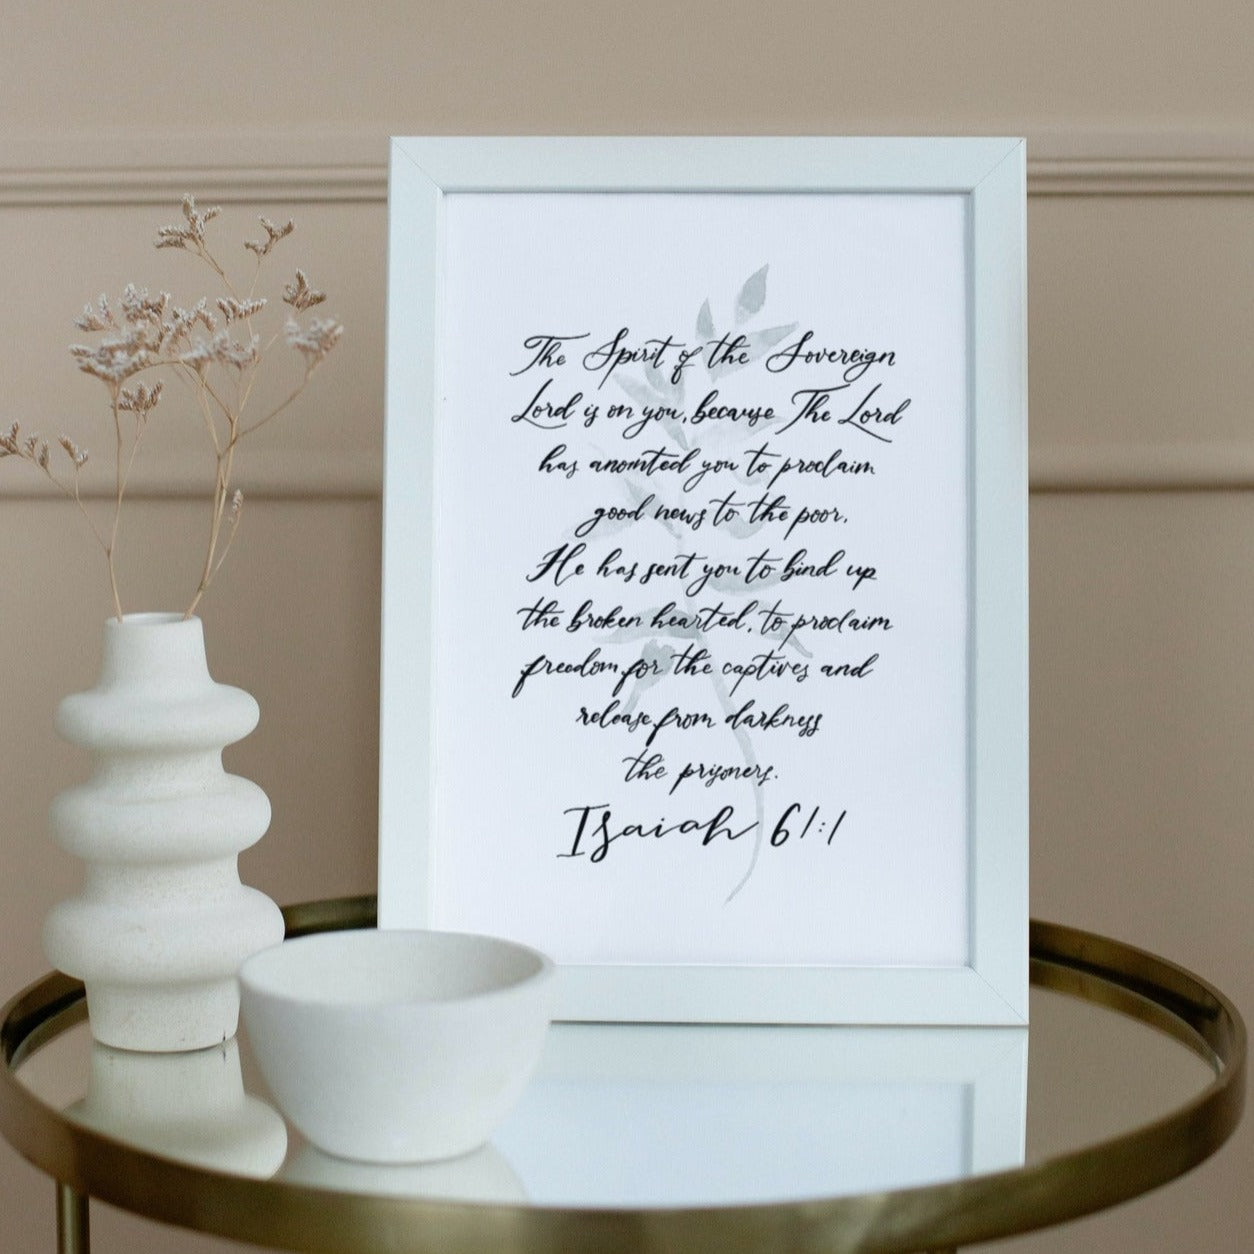 The Spirit of the Sovereign
Lord is on you, because The Lord
has anointed you to proclaim
good news to the poor.
He has sent you to bind up
the broken hearted, to proclaim
freedom for the captives and
release from darkness
the prisoners.
Isaiah 61:1